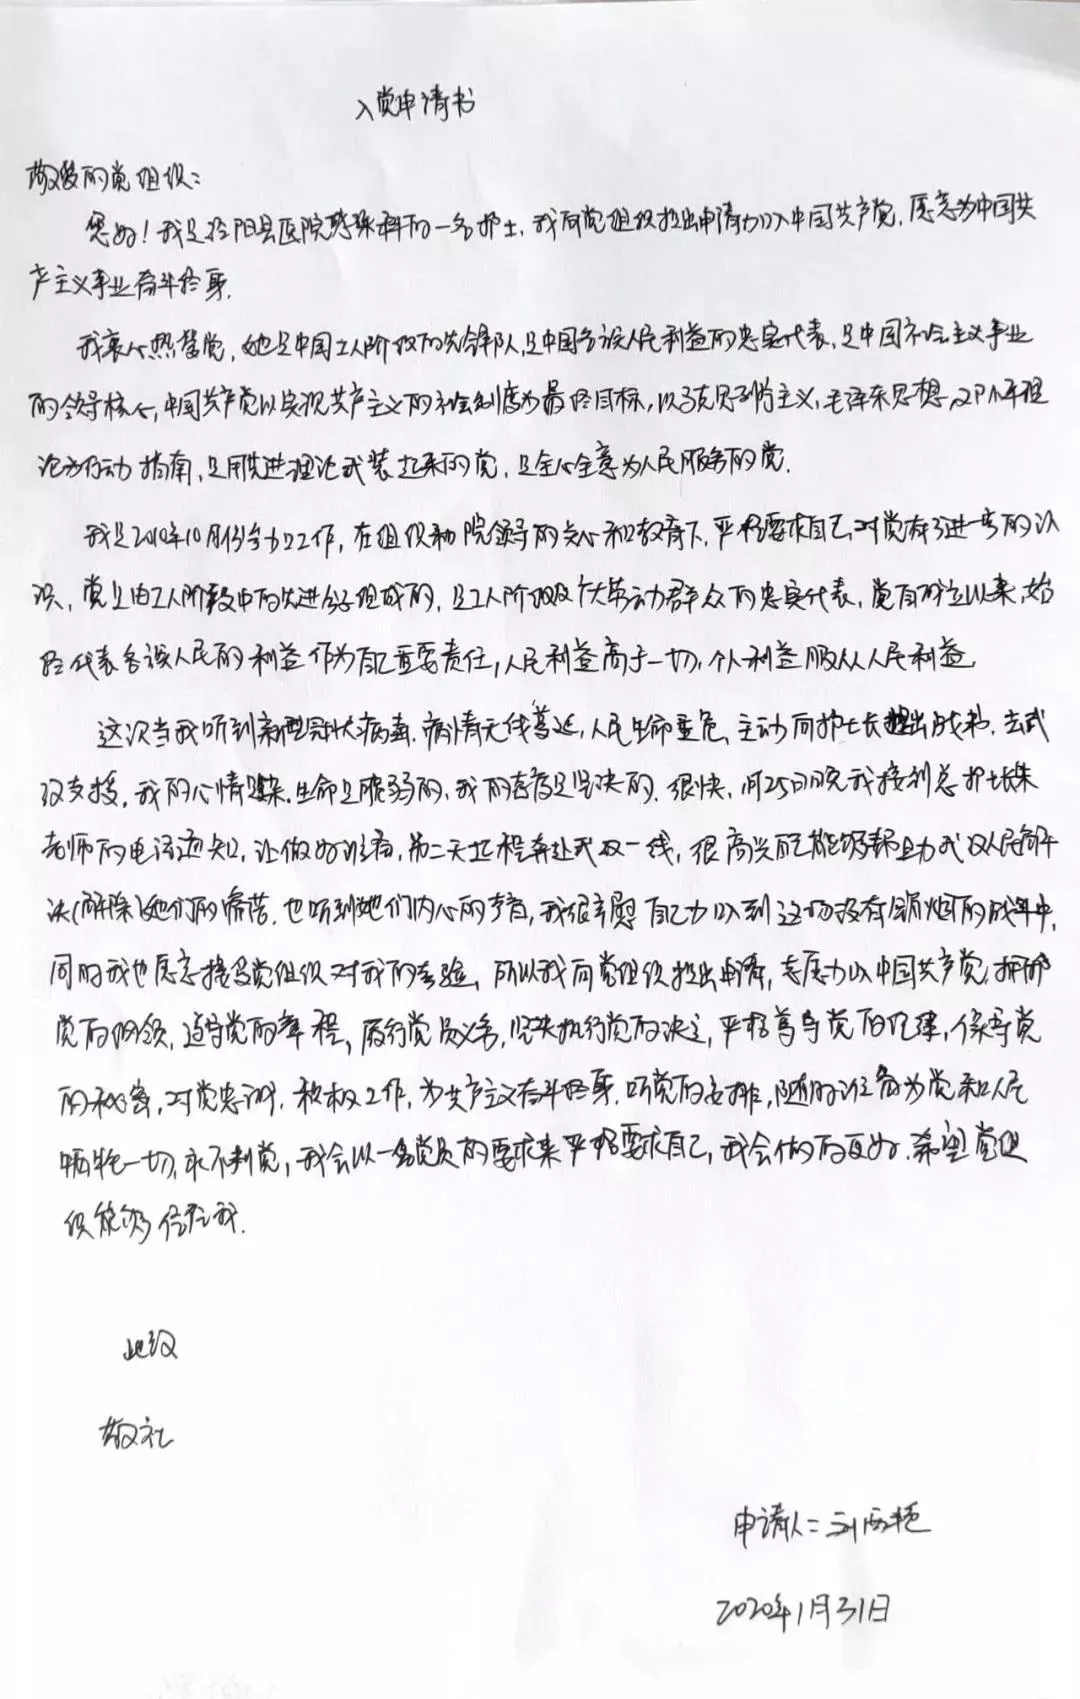 入党申请书
敬爱的党组织:
您好!我是泾阳县医院感染科的一名护士,我向党组织提出申请加入中国共产党,愿意为中国共
产主义事业奋斗终身.
我衷心热爱党,她是中国工人阶级的先锋队,是中国各族人民利益的忠实代表,是中国社会主义事业
的领导核心,中国共产党以实现共产主义的社会制度为最终目标,以马克思列宁主义,毛泽东思想,邓小平理
论为行动指南,是用先进理论武装起来的党,是全心全意为人民服务的党.
我是2010年10月份参加工作,在组织和院领导的关心和教育下,严格要求自己,对党有了进一步的认
识,党是由工人阶级中的先进分子组成的,是工人阶级及广大劳动群众的忠实代表,党自成立以来,始
终代表各族人民的利益作为自己重要责任,人民利益高于一切,个人利益服从人民利益
这次当我听到新型冠状病毒,病情无线蔓延,人民生命垂危,主动向护士长提出战,去武
汉支援,我的心情,生命是脆弱的,我的态度是坚决的.很快,1月25日晚我接到总护士长朱
老师的电话通知,让做好准备,第二天起程奔赴武汉一线,很高兴自己能够帮助武汉人民解
决(解除)她们的痛苦,也听到她们内心的声音,我很幸慰自己加入到这场没有硝烟的战争中,
同时我也愿意接受党组织对我的考验,所以我向党组织提出申请,志愿加入中国共产党,拥护
党的纲领,遵守党的章程,履行党员义务,坚决执行党的决定,严格遵守党的纪律,保守党
的秘密,对党忠诚,积极工作,为共产主义奋斗终身,听党的安排,随时准备为党和人民
牺牲一切,永不判党,我会以一名党员的要求来严格要求自己,我会做的更好.希望党组
织能够信任我.
此致
敬礼
申请人:刘
2020年1月31日